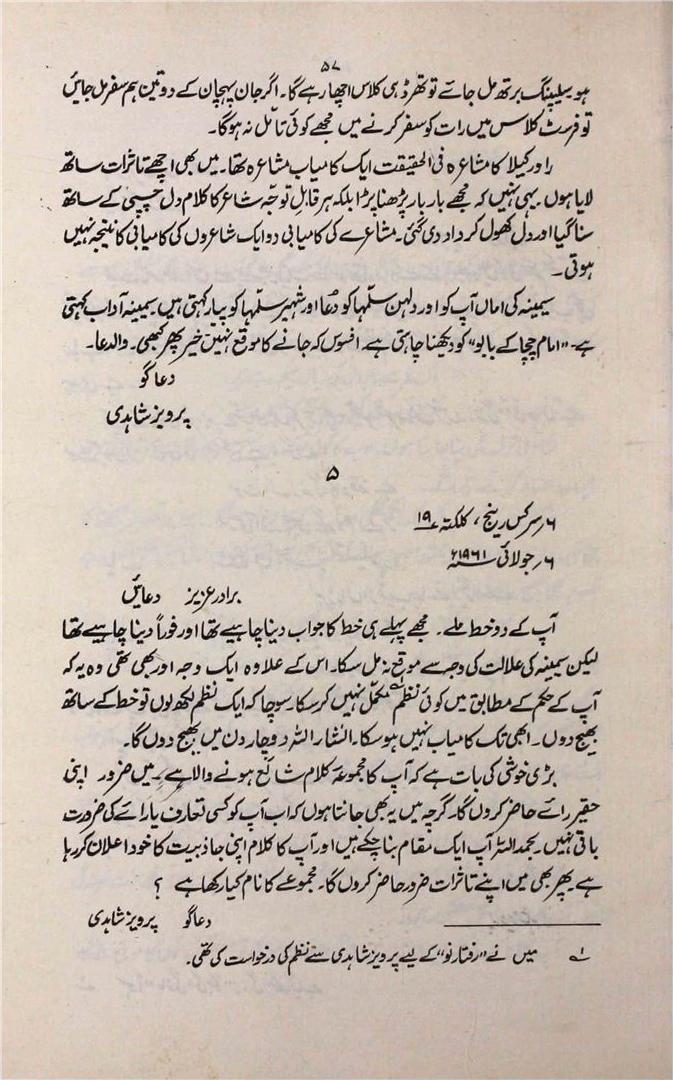 ۵۷
ہو سلیپنگ برتھ مل جائے تو تھرڈ ہی کلاس اچھا رہے گا۔ اگر جان پہچان کے دو تین ہم سفر مل جائیں
تو فرسٹ کلاس میں رات کو سفر کرنے میں مجھے کوئی تامّل نہ ہوگا۔
راورکیلا کا مشاعرہ فی الحقیقت ایک کامیاب مشاعرہ تھا۔ میں بھی اچھے تاثرات ساتھ
لایا ہوں۔ یہی نہیں کہ مجھے بار بار پڑھنا پڑا بلکہ ہر قابلِ توجّہ شاعر کا کلام دل چسپی کے ساتھ
سنا گیا اور دل کھول کر داد دی گئی۔ مشاعرے کی کامیابی دو ایک شاعروں کی کامیابی کا نتیجہ نہیں
ہوتی۔
سیمینہ کی اماں آپ کو اور دلہن سلّمہا کو دُعا اور شہپر سلّمہا کو پیار کہتی ہیں۔ سیمینہ آداب کہتی
ہے۔ "امام چچا کے بابو" کو دیکھنا چاہتی ہے۔ افسوس کہ جانے کا موقع نہیں خیر پھر کبھی۔ والدعا۔
دعا گو
پرویز شاہدی
۵
۶؍ سرکس رینج، کلکتہ ۱۹
۶؍ جولائی ۱۹۶۱ء
برادر عزیز دعائیں
آپ کے دو خط ملے۔ مجھے پہلے ہی خط کا جواب دینا چاہیے تھا اور فوراً دینا چاہیے تھا
لیکن سیمینہ کی علالت کی وجہ سے موقع نہ مل سکا۔ اس کے علاوہ ایک وجہ اور بھی تھی وہ یہ کہ
آپ کے حکم کے مطابق میں کوئی نظم ۱؎ مکمّل نہیں کر سکا۔ سوچا کہ ایک نظم لکھ لوں تو خط کے ساتھ
بھیج دوں۔ ابھی تک کامیاب نہیں ہو سکا۔ انشاء اللہ دو چار دن میں بھیج دوں گا۔
بڑی خوشی کی بات ہے کہ آپ کا مجموعۂ کلام شائع ہونے والا ہے۔ میں ضرور اپنی
حقیر رائے حاضر کروں گا۔ گرچہ میں یہ بھی جانتا ہوں کہ اب آپ کو کسی تعارف یا رائے کی ضرورت
باقی نہیں۔ بحمد اللہ آپ ایک مقام بنا چکے ہیں اور آپ کا کلام اپنی جاذبیت کا خود اعلان کر رہا
ہے۔ پھر بھی میں اپنے تاثرات ضرور حاضر کروں گا۔ مجموعے کا نام کیا رکھا ہے ؟
دعا گو پرویز شاہدی
۱؎ میں نے "رفتارِ نو" کے لیے پرویز شاہدی سے نظم کی درخواست کی تھی۔